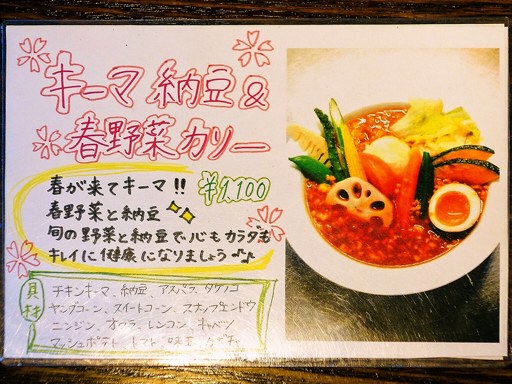 キーマ 納豆 &
春野菜 カリー
春が来てキーマ!! ¥1,100
春野菜と納豆
旬の野菜と納豆で心もカラダも
キレイに健康になりましょう♪♪
具材
チキンキーマ、納豆、アスパラ、タケノコ
ヤングコーン、スイートコーン、スナップエンドウ
ニンジン、オクラ、レンコン、キャベツ
マッシュポテト、トマト、味玉、かぼちゃ